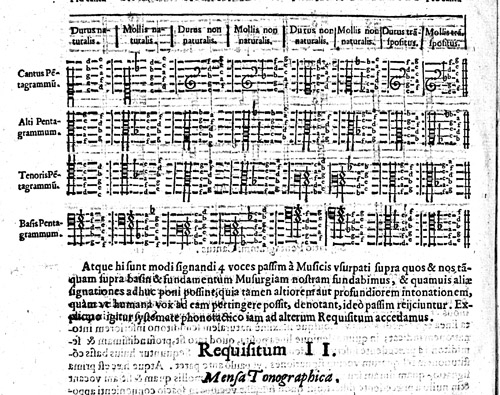 Durus na- Mollis na- Durus non Mollis non Durus non Mollis non Durus trā- Mollis trā-
turalis. turalis. naturalis. naturalis. naturalis. naturalis. spositus. spositus.
Cantus Pē-
tagrammū.
Alti Penta-
grammum.
Tenoris Pē-
tagrammū.
Basis Penta-
grammum.
Atque hi sunt modi signandi 4 voces passim à Musicis usurpati supra quos & nos, tā-
quam supra basin & fundamentum Musurgiam nostram fundabimus, & quamuis aliæ
signationes adhuc poni possint, quia tamen altiorem aut profundiorem intonationem,
quàm ve humana vox ad eam pertingere possit, denotant, ideò passim reijciuntur. Ex-
igitur systemate phonotactico iam ad alterum Requisitum accedamus.
Requisitum II.
Mensa Tonographica.